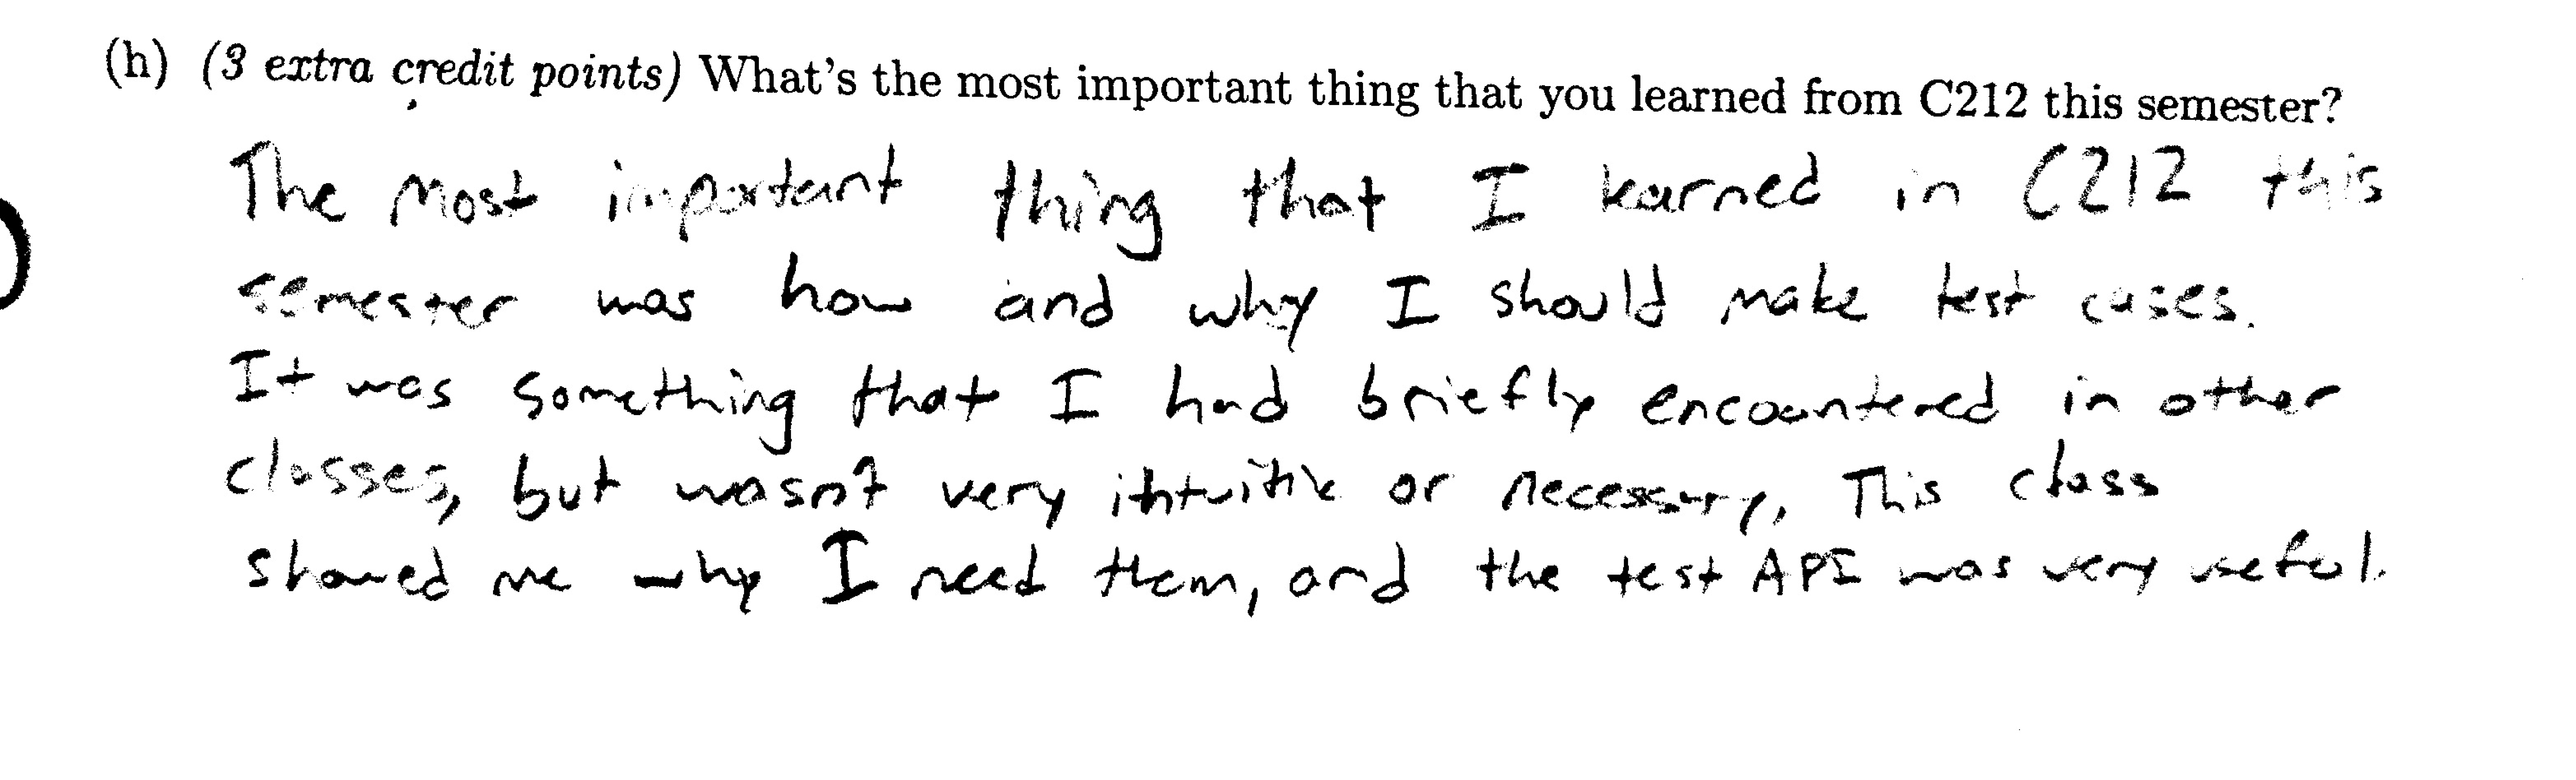 (h) (3 extra credit points) What's the most important thing that you learned from C212 this semester?
The most important thing that I learned in C212 this
semester was how and why I should make test cases.
It was something that I had briefly encountered in other
classes, but wasn't very intuitive or necessary. This class
showed me why I need them, and the test API was very useful.